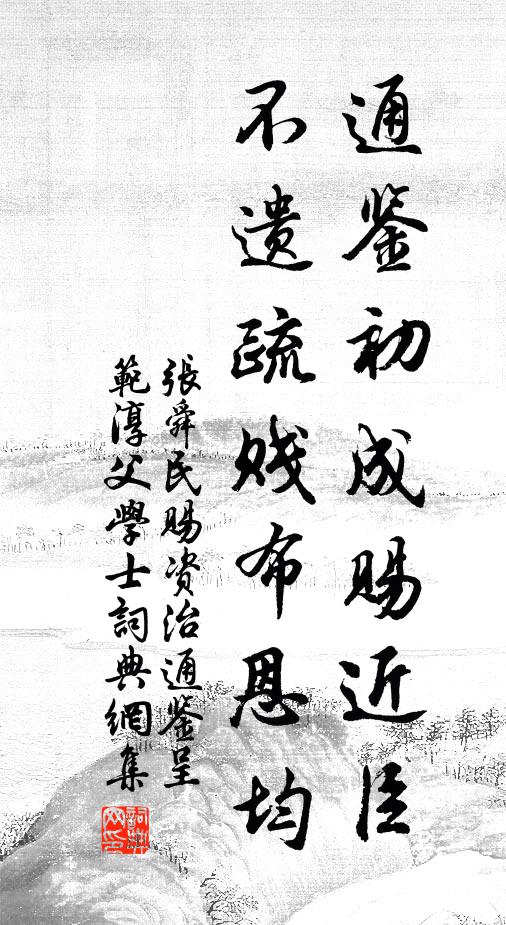 通鉴初成賜近臣
不遺疏賤布恩均
張舜民賜資治通鉴呈
範淳父學士詞典網集